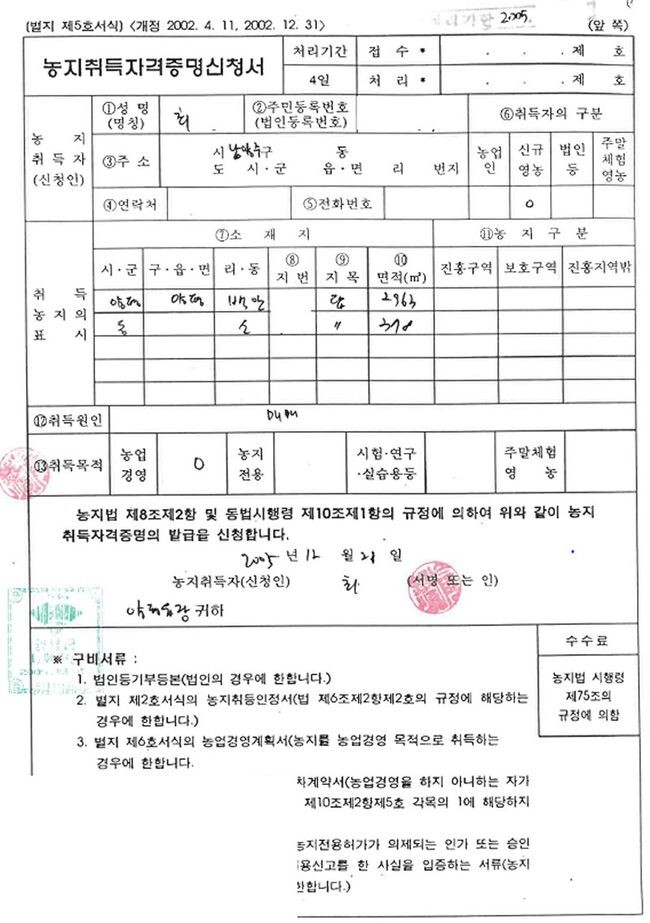 [별지 제5호서식] <개정 2002. 4. 11, 2002. 12. 31> (앞 쪽)
2005.
농지취득자격증명신청서
처리기간 접 수 * . . . 제 호
4일 처 리 * . . . 제 호
농 지
취 득 자
(신청인)
①성 명
(명칭)
최
②주민등록번호
(법인등록번호)
⑥취득자의 구분
③주 소
시 남양주 구 동
도 시·군 읍·면 리 번지
농업
인
신규
영농
법인
등
주말
체험
영농
④연락처 ⑤전화번호 O
취 득
농 지 의
표 시
⑦소 재 지 ⑪농 지 구 분
시·군 구·읍·면 리·동 ⑧지 번 ⑨지 목 ⑩면적(㎡) 진흥구역 보호구역 진흥지역밖
양평 양평 백안 답 2963
〃 378
⑫취득원인 매매
⑬취득목적
농업
경영
O
농지
전용
시험·연구
·실습용등
주말체험
영 농
농지법 제8조제2항 및 동법시행령 제10조제1항의 규정에 의하여 위와 같이 농지
취득자격증명의 발급을 신청합니다.
2005 년 12 월 21 일
농지취득자(신청인) 최 (서명 또는 인)
양평읍장 귀하
수수료
농지법 시행령
제75조의
규정에 의함
※ 구비서류 :
1. 법인등기부등본(법인의 경우에 한합니다.)
2. 별지 제2호서식의 농지취등인정서(법 제6조제2항제2호의 규정에 해당하는
경우에 한합니다.)
3. 별지 제6호서식의 농업경영계획서(농지를 농업경영 목적으로 취득하는
경우에 한합니다.
차계약서(농업경영을 하지 아니하는 자가
제10조제2항제5호 각목의 1에 해당하지
농지전용허가가 의제되는 인가 또는 승인
용신고를 한 사실을 입증하는 서류(농지
한합니다.)